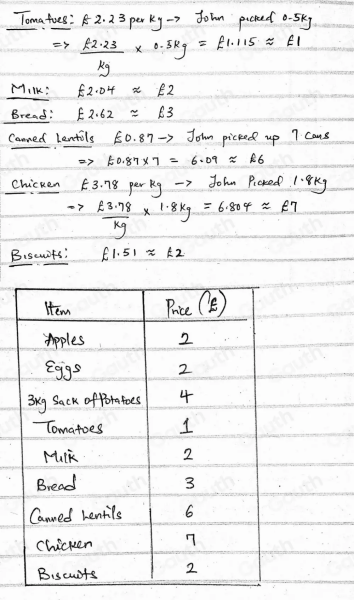 Tomatoes: £2.23 per kg → John picked 0.5kg
=> £2.23/kg × 0.5kg = £1.115 ≈ £1
Milk: £2.04 ≈ £2
Bread: £2.62 ≈ £3
Canned lentils £0.87 → John picked up 7 cans
=> £0.87×7 = 6.09 ≈ £6
Chicken £3.78 per kg → John Picked 1.8kg
=> £3.78/kg × 1.8kg = 6.804 ≈ £7
Biscuits: £1.51 ≈ £2
Item Price (£)
Apples 2
Eggs 2
3kg Sack of Potatoes 4
Tomatoes 1
Milk 2
Bread 3
Canned Lentils 6
Chicken 7
Biscuits 2